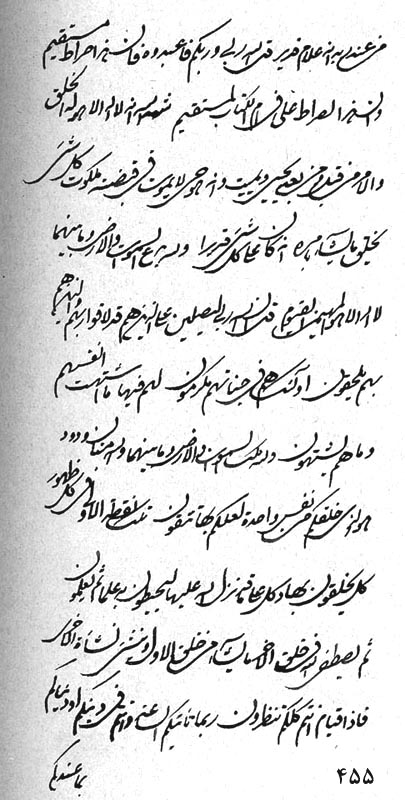 من عند ربه انه علام قدیر قل الله ربی و ربکم فاعبدوه فان هذا صراط مستقیم
وان هذا الصراط علی فی ام الکتاب لمستقیم شهد الله انه لا اله الا هو له الخلق
والامر من قبل ومن بعد یحیی ویمیت وانه هو حی لا یموت فی قبضته ملکوت کل شیء
یخلق مایشاء بامره انه کان علی کل شیء قدیرا ولله السموات والارض وما بینهما
لا اله الا هو المهیمن القیوم قل ان الله ربی علی الذین هم قد لاقوا ربهم والذین هم
بهم یلحقون اولئک هم فی جناتهم مکرمون لهم فیها ما اشتهت انفسهم
وما هم یشتهون ولله ملک السموات والارض وما بینهما والله منان ودود
هو الذی خلقکم من نفس واحدة لعلکم بها تتقون تلک نقطة الاولی فی کل ظهور
کل یخلقون بها وکل علی ما نزل الله علیها لیحیطون به علما ثم یعلمون
ثم یصطفی الله فی خلق الاخر مایشاء من خلق الاول وینشئ نشأة الاخری
فاذا قیام انتم کلکم تنظرون ربما تأتیکم الساعة وانتم فی دینکم او دنیاکم
بما عندکم
۴۵۵